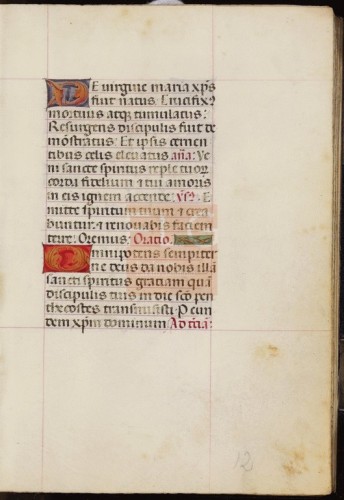 DE virgine maria xp̄s
fuit natus. Crucifix⁹
mortuus atq; tumulatus:
Resurgens discipulis fuit de
mōstratus: Et ipsis cernen
tibus celis eleuatus añа: Ve
ni sancte spiritus reple tuoꝝ
corda fidelium ⁊ tui amoris
in eis ignem accende: v̄s: E
mitte spiritum tuum ⁊ crea
buntur: ⁊ renouabis faciem
terre: Oremus: Oratio.
Omnipotens sempiter
ne deus da nobis illā
sancti spiritus gratiam quā
discipulis tuis in die scō pen
thecostes transmisisti: P eun
dem xp̄m dominum Ad t̄ciā:
12